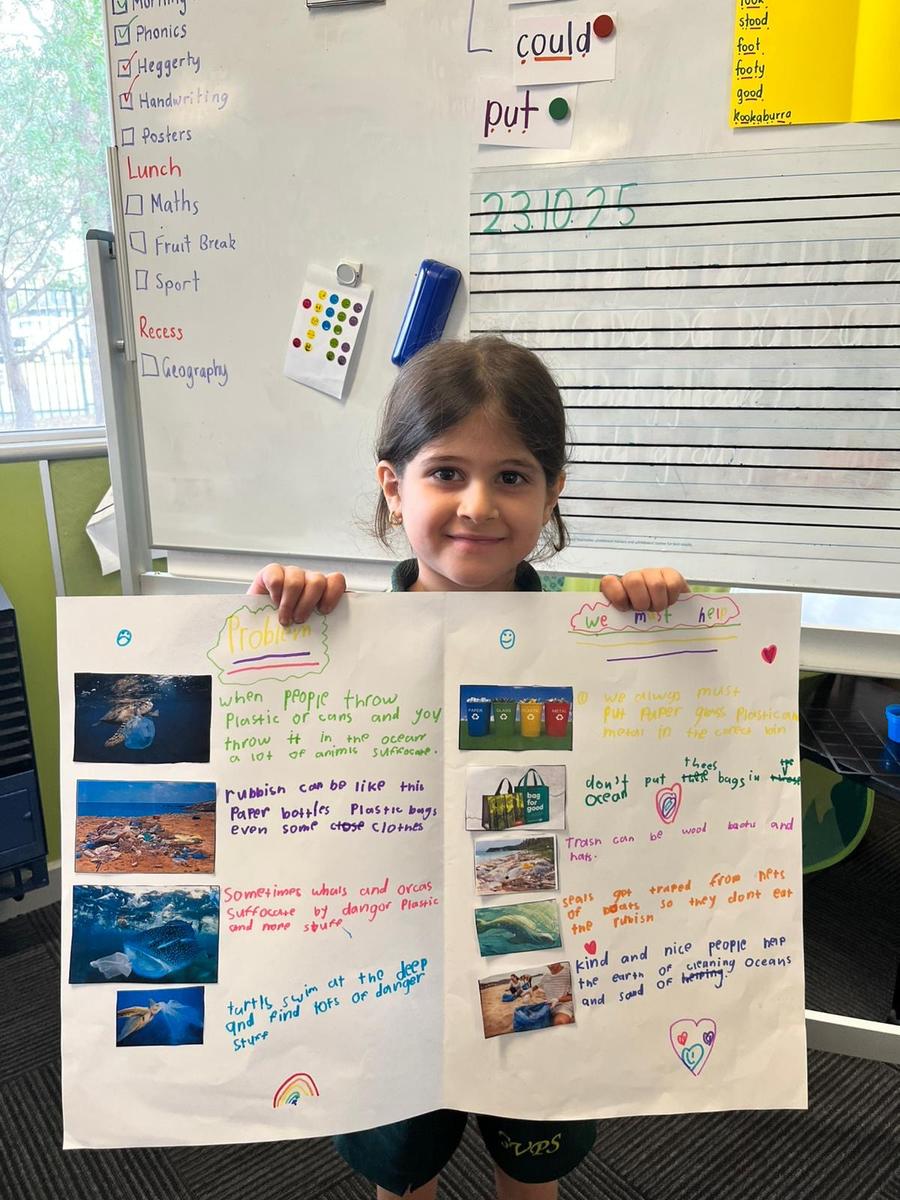 Morning
Phonics
Heggerty
Handwriting
Posters
Lunch
Maths
Fruit Break
Sport
Recess
Geography
could
put
look
stood
foot
footy
good
kookaburra
23.10.25
Problem
when people throw
Plastic or cans and you
throw it in the ocean
a lot of animls suffocate.
rubbish can be like this
Paper bottles Plastic bags
even some close clothes
Sometimes whals and orcas
suffocate by dangor Plastic
and more stuff
turtls swim at the deep
and find lots of danger
stuff
we must help
we always must
put Paper glass Plastic an
metal in the corect bin
PAPER
GLASS
METAL
thees
don't put these bags in
ocean
bag
for
good
Trash can be wood boohs and
hats.
seals got traped from nets
of boats so they dont eat
the rubish
kind and nice people help
the earth of cleaning oceans
and sand of helping.
VPS